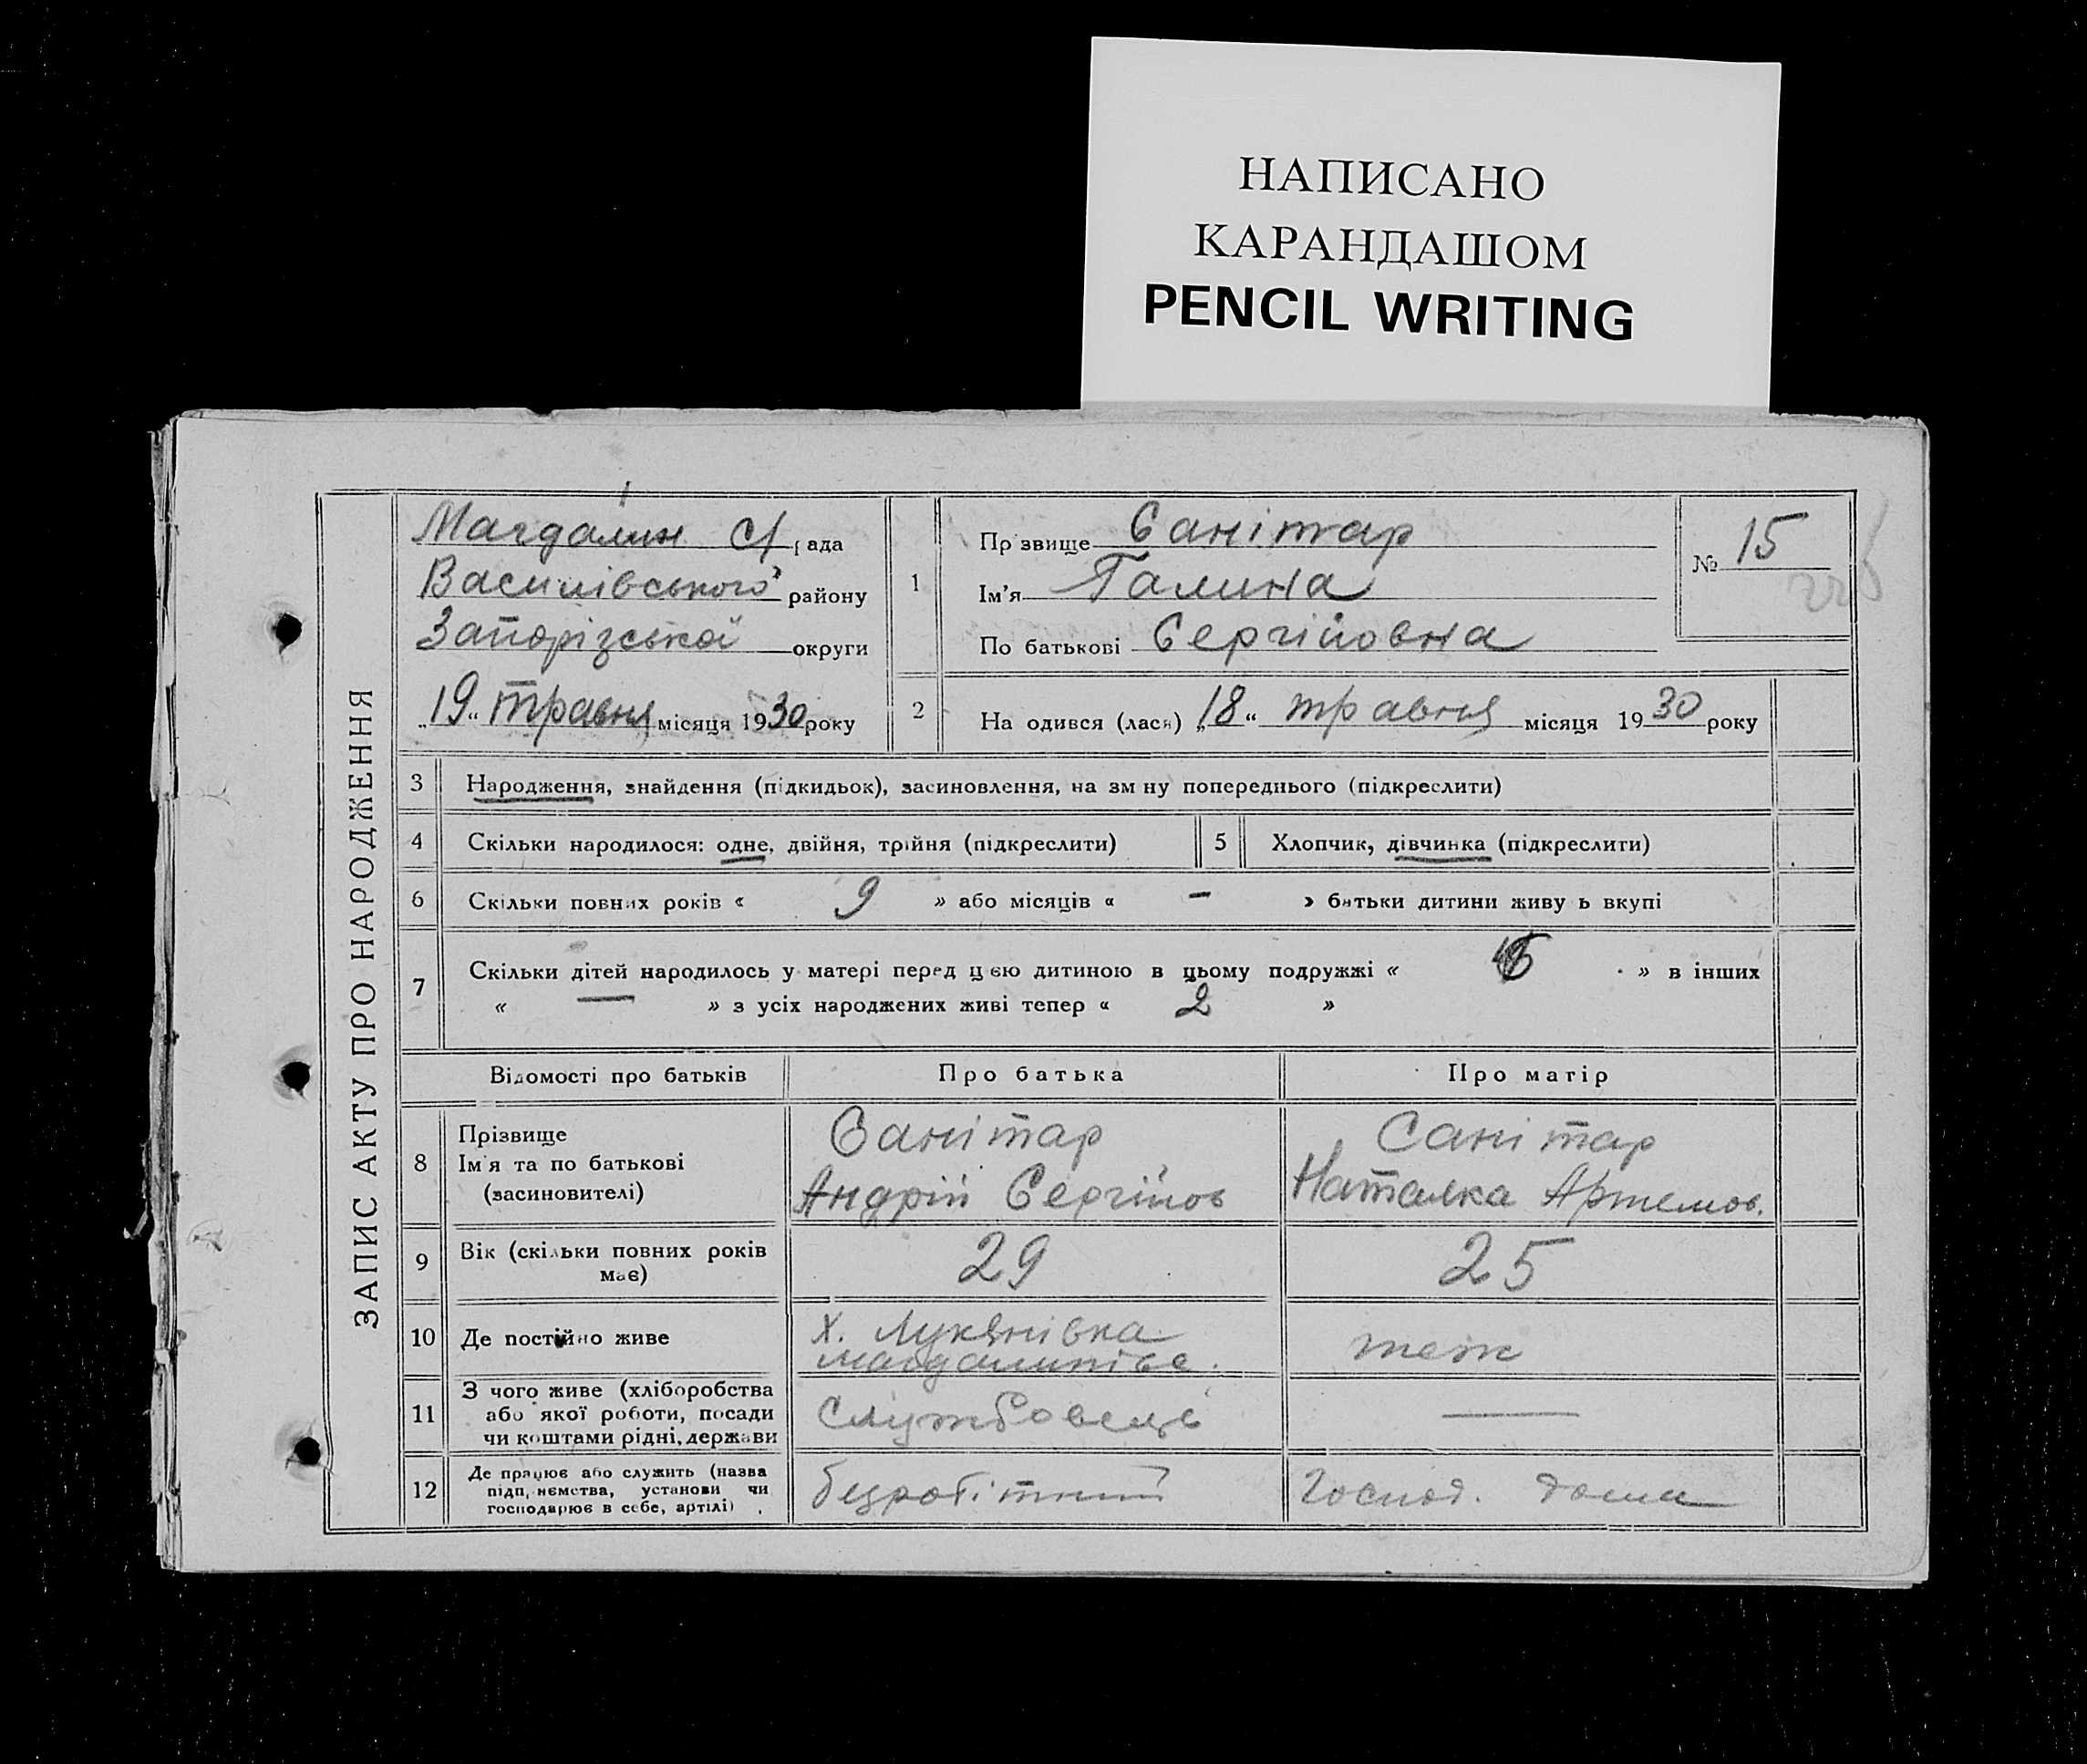 НАПИСАНО
КАРАНДАШОМ
PENCIL WRITING
ЗАПИС АКТУ ПРО НАРОДЖЕННЯ
Магдалин с/рада
Василівського району
Запорізської округи
„19“ травня місяця 1930 року
1
Пр звище Санітар
Ім'я Галина
По батькові Сергійовна
№ 15
2 На одився (лася) „18“ травня місяця 1930 року
3 Народження, знайдення (підкидьок), засиновлення, на зм ну попереднього (підкреслити)
4 Скільки народилося: одне, двійня, трійня (підкреслити)
5 Хлопчик, дівчинка (підкреслити)
6 Скільки повних років « 9 » або місяців « - » батьки дитини живу ь вкупі
7 Скільки дітей народилось у матері перед цією дитиною в цьому подружжі « » в інших
« — » з усіх народжених живі тепер « 2 »
Відомості про батьків Про батька Про матір
8 Прізвище
Ім'я та по батькові
(засиновителі)
Санітар
Андрій Сергійов
Санітар
Наталка Артемов.
9 Вік (скільки повних років
має)
29
25
10 Де постійно живе
х. Лукянівка
Магдалинівс.
теж
11 З чого живе (хліборобства
або якої роботи, посади
чи коштами рідні, держави
Службовець
—
12 Де працює або служить (назва
підп, немства, установи чи
господарює в себе, артілі)
безробітний
Господ. дома